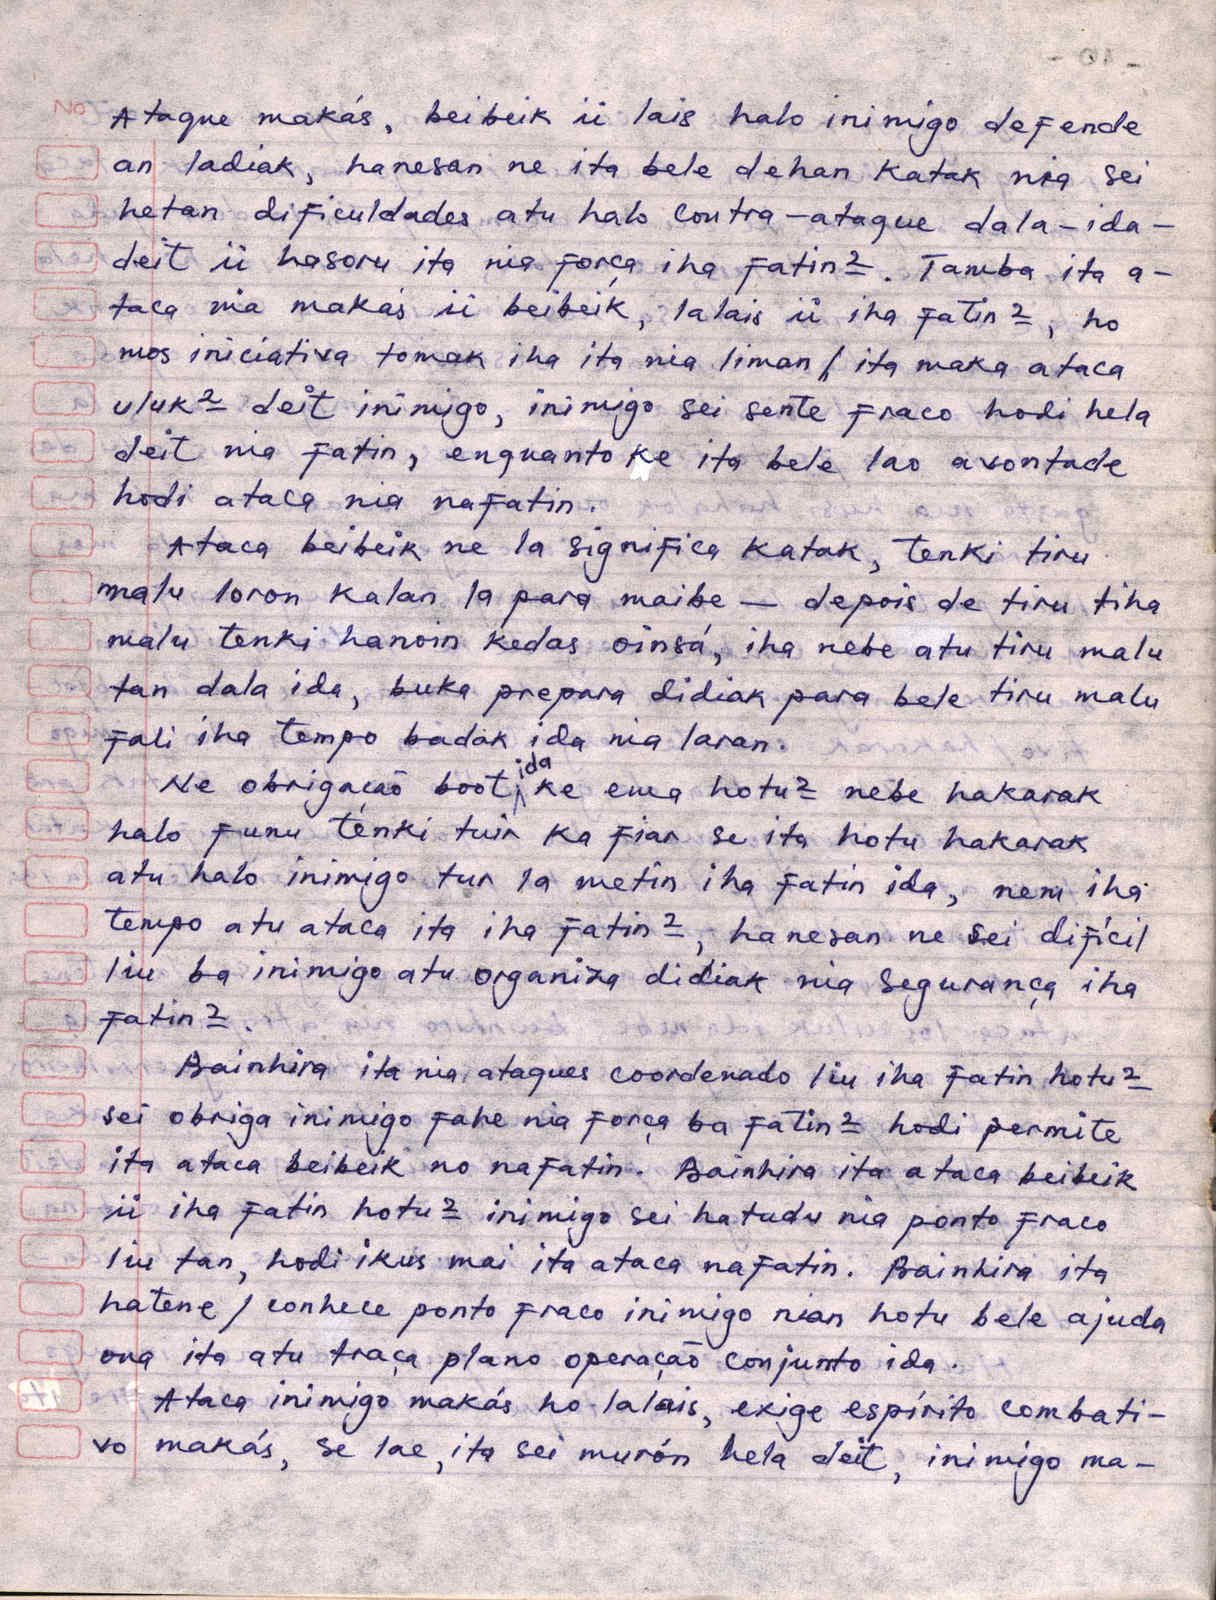 Ataque makás, beibeik ii lais halo inimigo defende
an ladiak, hanesan ne ita bele dehan katak nia sei
hetan dificuldades atu halo contra-ataque dala-ida-
deit ii hasoru ita nia força iha fatin2. Tamba ita a-
taca nia makás ii beibeik, lalais ii iha fatin2, ho
mos iniciativa tomak iha ita nia liman / ita maka ataca
uluk2 deit inimigo, inimigo sei sente fraco hodi hela
deit nia fatin, enquanto ke ita bele lao avontade
hodi ataca nia nafatin.
Ataca beibeik ne la significa katak, tenki tiru
malu loron kalan la para maibe — depois de tiru tiha
malu tenki hanoin kedas oinsá, iha nebe atu tiru malu
tan dala ida, buka prepara didiak para bele tiru malu
fali iha tempo badak ida nia laran.
Ne obrigação boot ida ke ema hotu2 nebe hakarak
halo funu tenki tuir ka fiar se ita hotu hakarak
atu halo inimigo tur la metin iha fatin ida, nem iha
tempo atu ataca ita iha fatin2, hanesan ne sei difícil
liu ba inimigo atu organiza didiak nia segurança iha
fatin2.
Bainhira ita nia ataques coordenado liu iha fatin hotu2
sei obriga inimigo fahe nia força ba fatin2 hodi permite
ita ataca beibeik no nafatin. Bainhira ita ataca beibeik
ii iha fatin hotu2 inimigo sei hatudu nia ponto fraco
liu tan, hodi ikus mai ita ataca nafatin. Bainhira ita
hatene / conhece ponto fraco inimigo nian hotu bele ajuda
ona ita atu traça plano operação conjunto ida.
Ataca inimigo makás ho lalais, exige espírito combati-
vo makás, se lae, ita sei murón hela deit, inimigo ma-